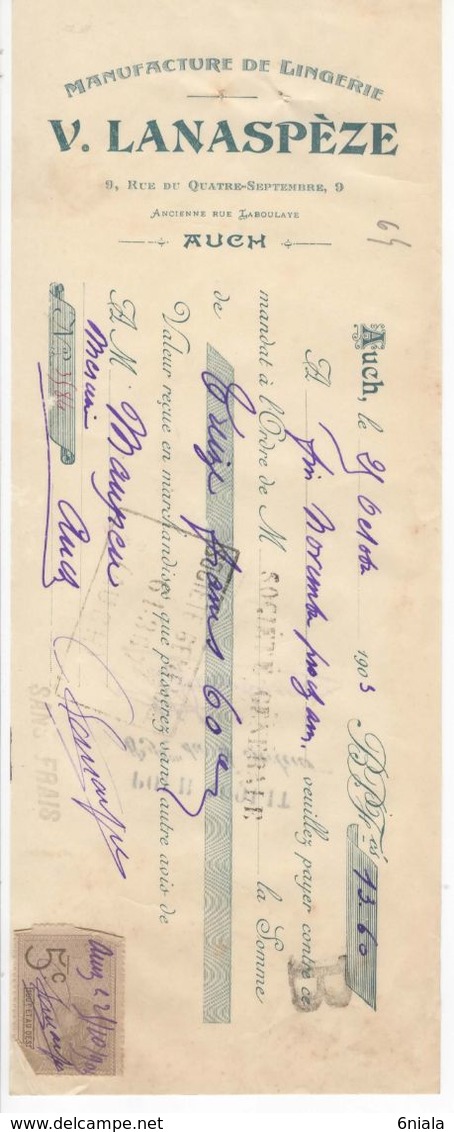 MANUFACTURE DE LINGERIE
V. LANASPÈZE
9, RUE DU QUATRE-SEPTEMBRE, 9
ANCIENNE RUE LABOULAYE
AUCH
64
Auch, le 21 Octobre 1903 B.P.Fcs 13.60
A fin Novembre prochain, veuillez payer contre ce
mandat à l'Ordre de M SOCIÉTÉ GÉNÉRALE la Somme
de Treize francs 60 ces
Valeur reçue en marchandises que passerez sans autre avis de
A M. Maupeu
Auch
No
SANS FRAIS
B
5c
6niala
delcampe.net